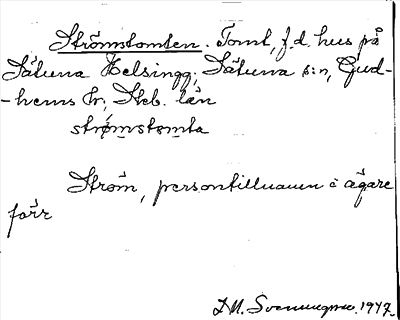 Strömstomten. Tomt, f.d. hus på
Sätuna Helsingg; Sätuna s:n, Gud-
-hems hr, Skb. län
strömstomta
Ström, persontillnamn å ägare
förr